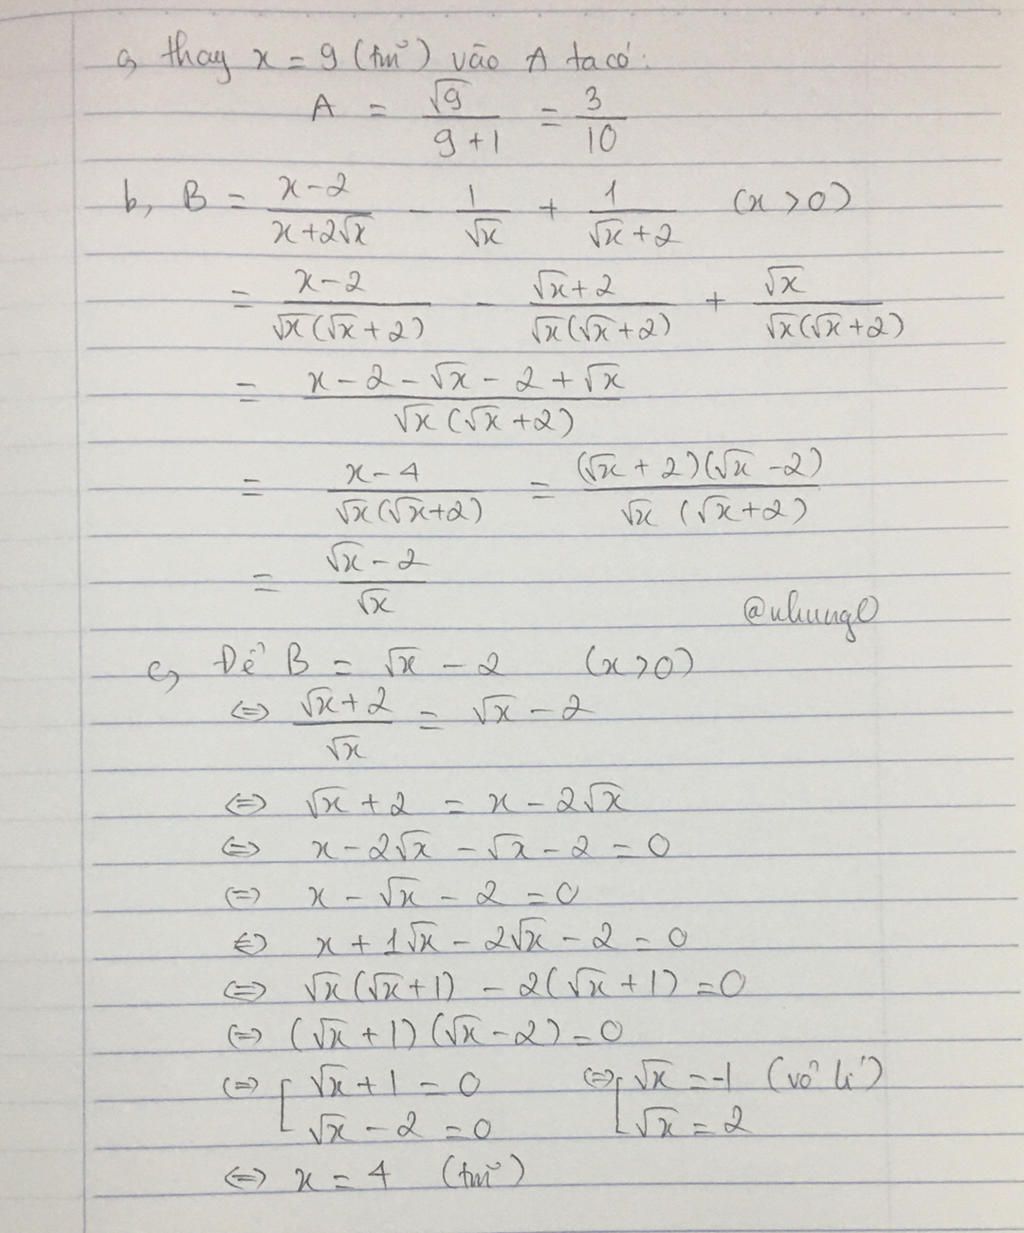 a, thay x = 9 (tm) vào A ta có:
A = √9 / (9 + 1) = 3/10
b, B = (x - 2)/(x + 2√x) - 1/√x + 1/(√x + 2) (x > 0)
= (x - 2)/(√x(√x + 2)) - (√x + 2)/(√x(√x + 2)) + √x/(√x(√x + 2))
= (x - 2 - √x - 2 + √x)/(√x(√x + 2))
= (x - 4)/(√x(√x + 2)) = ((√x + 2)(√x - 2))/(√x(√x + 2))
= (√x - 2)/√x
@nhung0
c, Để B = √x - 2 (x > 0)
⇔ (√x + 2)/√x = √x - 2
⇔ √x + 2 = x - 2√x
⇔ x - 2√x - √x - 2 = 0
⇔ x - √x - 2 = 0
⇔ x + 1√x - 2√x - 2 = 0
⇔ √x(√x + 1) - 2(√x + 1) = 0
⇔ (√x + 1)(√x - 2) = 0
⇔ [ √x + 1 = 0 ⇔ [ √x = -1 (vô lí)
√x - 2 = 0 √x = 2
⇔ x = 4 (tm)